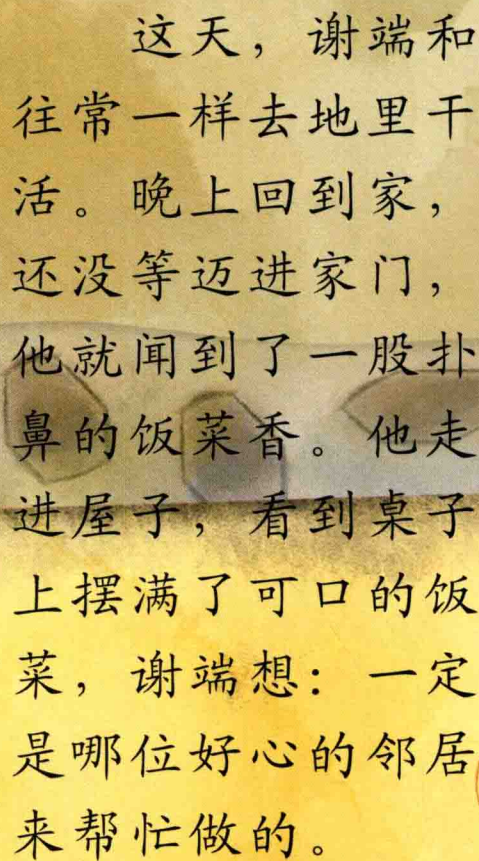 这天，谢端和
往常一样去地里干
活。晚上回到家，
还没等迈进家门，
他就闻到了一股扑
鼻的饭菜香。他走
进屋子，看到桌子
上摆满了可口的饭
菜，谢端想：一定
是哪位好心的邻居
来帮忙做的。